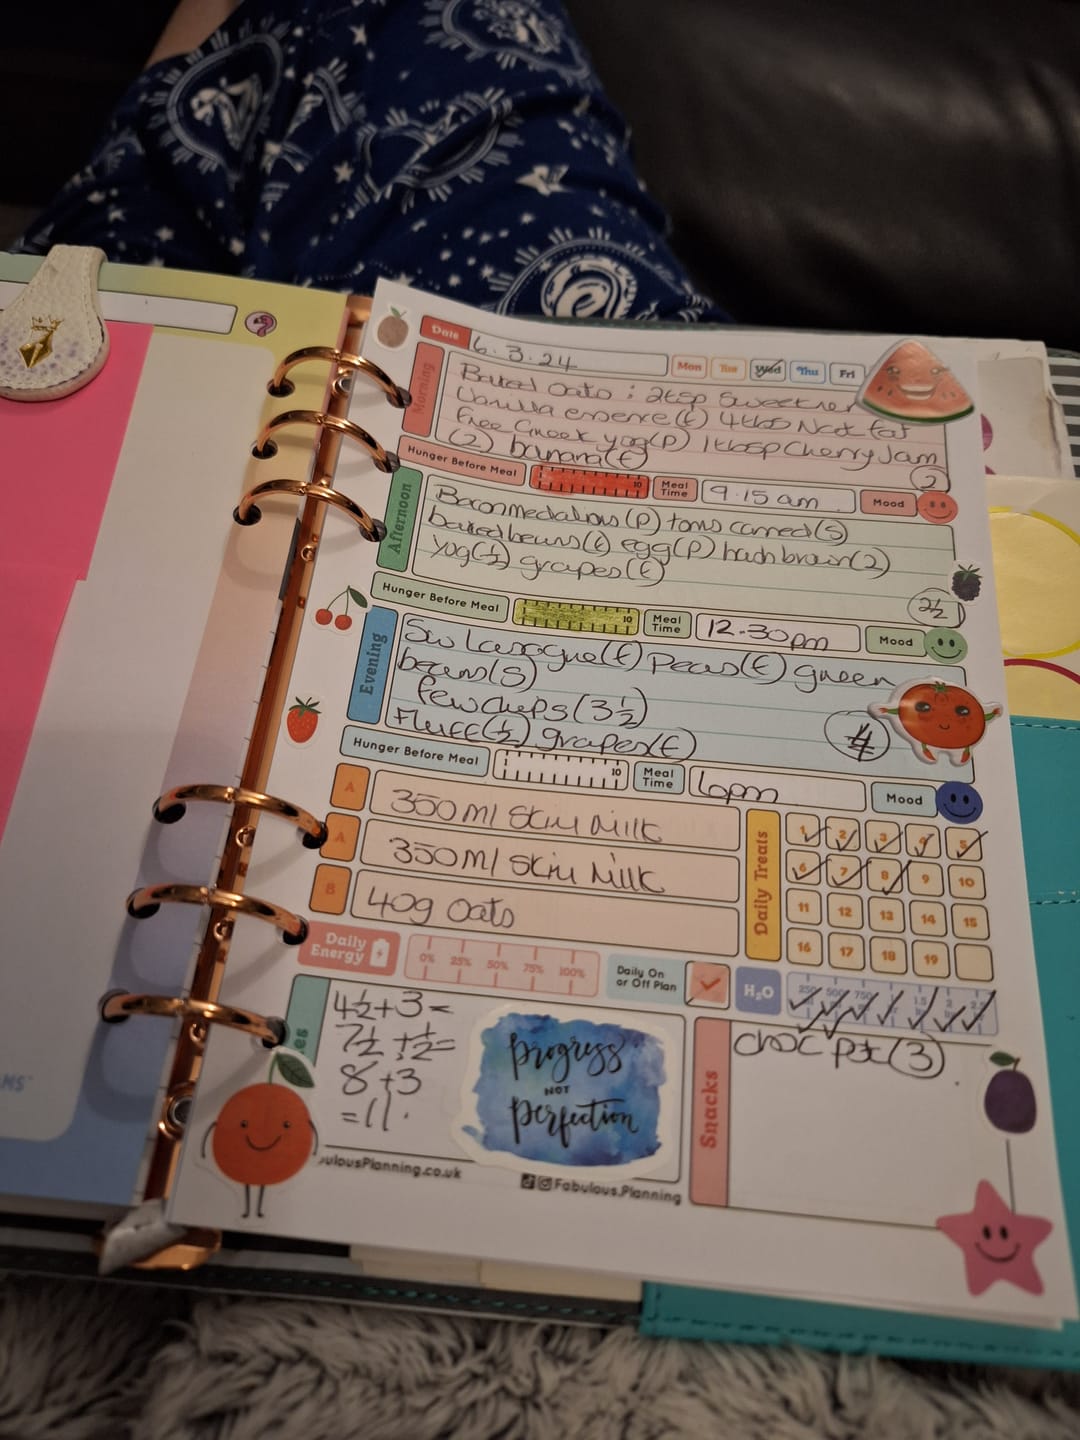 Date 6.3.24 Mon Tue Wed Thu Fri
Morning
Baked Oats : 2tsp Sweetner
Vanilla essence (f) 4tbsp Nat fat
free Greek yog(P) 1tbsp Cherry Jam
(2) banana(f)
2
Hunger Before Meal 10 Meal Time 9.15am Mood
Afternoon
Bacon medalions (P) toms canned(s)
baked beans(f) egg(P) hash brown(2)
yog(½) grapes(f)
2½
Hunger Before Meal 10 Meal Time 12.30pm Mood
Evening
Sw Lasagne(f) Peas(f) green
beans(s)
few chips (3½)
Fluff(½) grapes(f)
4
Hunger Before Meal 10 Meal Time 6pm Mood
A 350ml Skim Milk
A 350ml Skim Milk
B 40g Oats
Daily Treats
1 2 3 4 5
6 7 8 9 10
11 12 13 14 15
16 17 18 19
Daily Energy 0% 25% 50% 75% 100%
Daily On or Off Plan
H₂O 250 500 750 1 1.5 2
es
4½+3=
7½+½=
8+3
=11.
progress
NOT
perfection
Snacks
choc pot (3)
ulousPlanning.co.uk
Fabulous.Planning